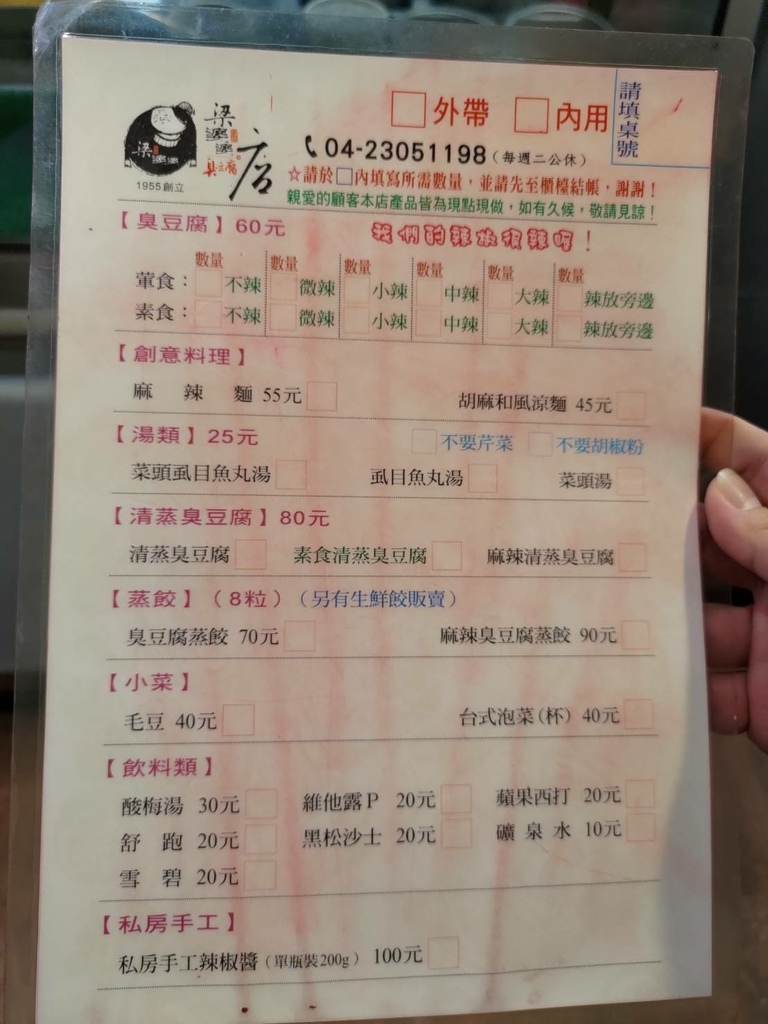 □外帶 □內用
請填桌號
梁婆婆臭豆腐店
1955創立
04-23051198（每週二公休）
☆請於□內填寫所需數量，並請先至櫃檯結帳，謝謝！
親愛的顧客本店產品皆為現點現做，如有久候，敬請見諒！
【臭豆腐】60元 我們的辣椒很辣喔！
數量 數量 數量 數量 數量 數量
葷食：□不辣 □微辣 □小辣 □中辣 □大辣 □辣放旁邊
素食：□不辣 □微辣 □小辣 □中辣 □大辣 □辣放旁邊
【創意料理】
麻辣麵 55元□ 胡麻和風涼麵 45元□
【湯類】25元 □不要芹菜 □不要胡椒粉
菜頭虱目魚丸湯□ 虱目魚丸湯□ 菜頭湯□
【清蒸臭豆腐】80元
清蒸臭豆腐□ 素食清蒸臭豆腐□ 麻辣清蒸臭豆腐□
【蒸餃】（8粒）（另有生鮮餃販賣）
臭豆腐蒸餃 70元□ 麻辣臭豆腐蒸餃 90元□
【小菜】
毛豆 40元□ 台式泡菜(杯) 40元□
【飲料類】
酸梅湯 30元□ 維他露P 20元□ 蘋果西打 20元□
舒跑 20元□ 黑松沙士 20元□ 礦泉水 10元□
雪碧 20元□
【私房手工】
私房手工辣椒醬（單瓶裝200g） 100元□